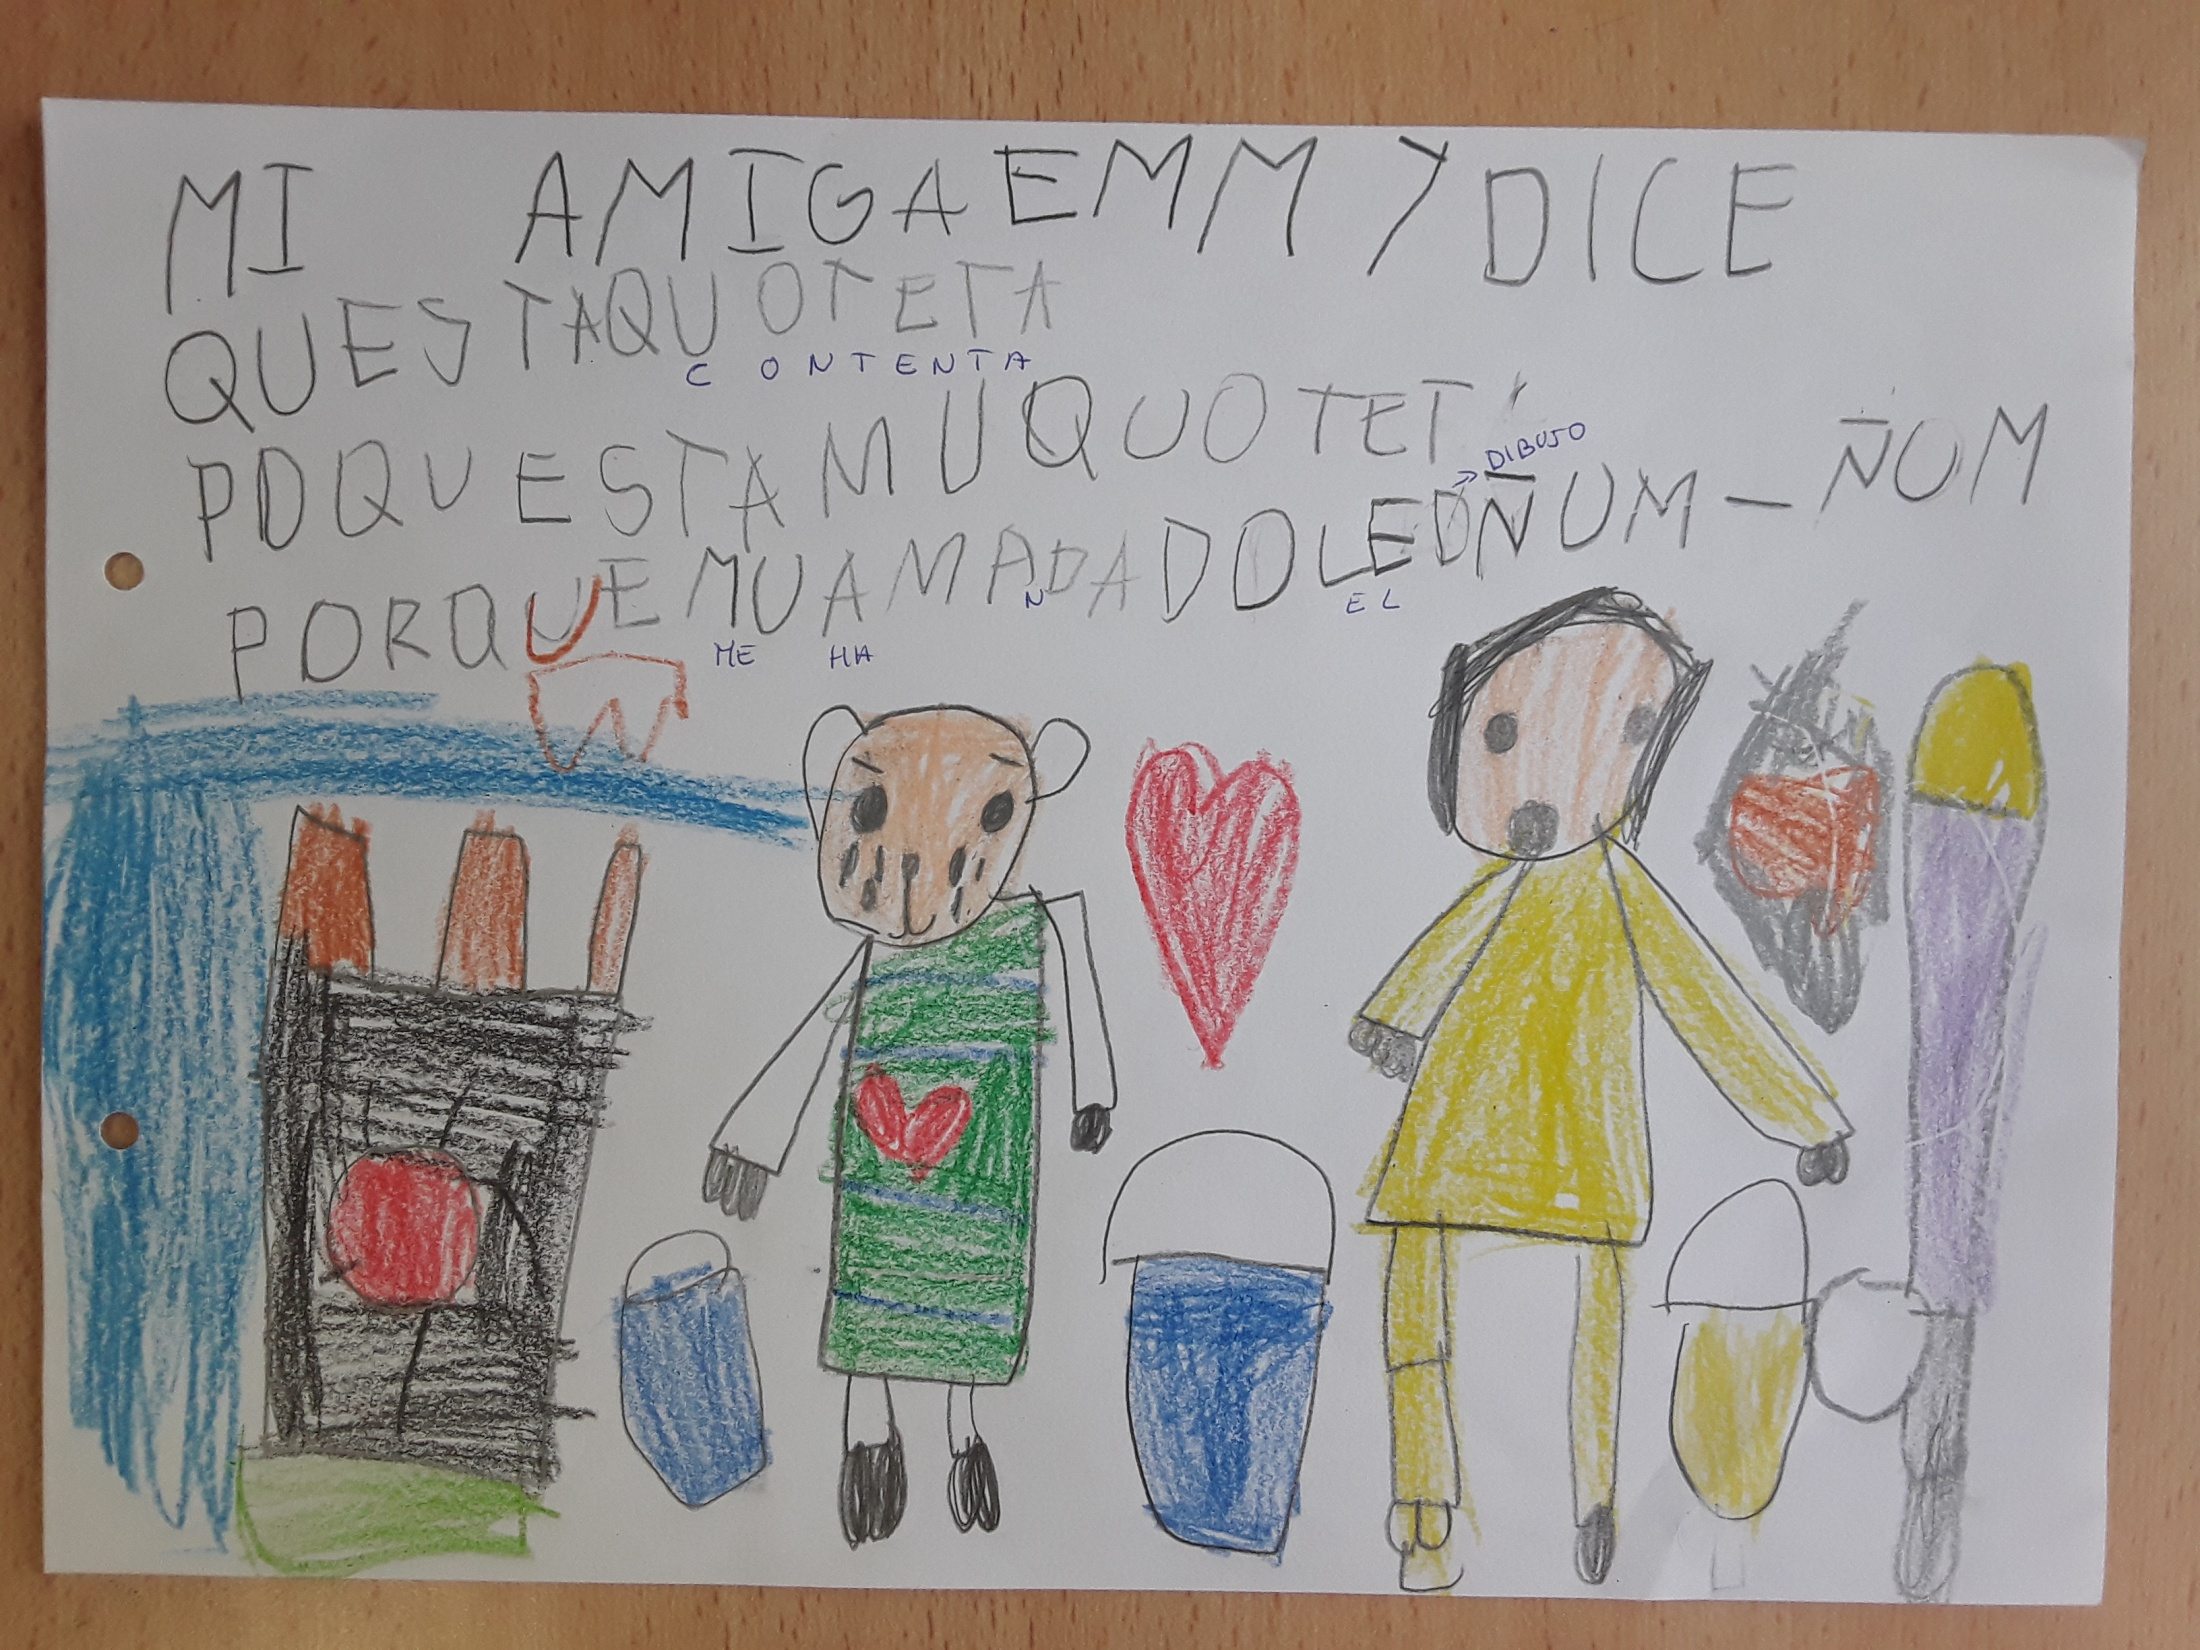 MI AMIGA EMMY DICE
QUESTAQUOTETA
CONTENTA
PDQUESTAMUQUOTET
DIBUJO
PORQUEMUAMADADOLEDÑUM-ÑOM
ME HA N EL